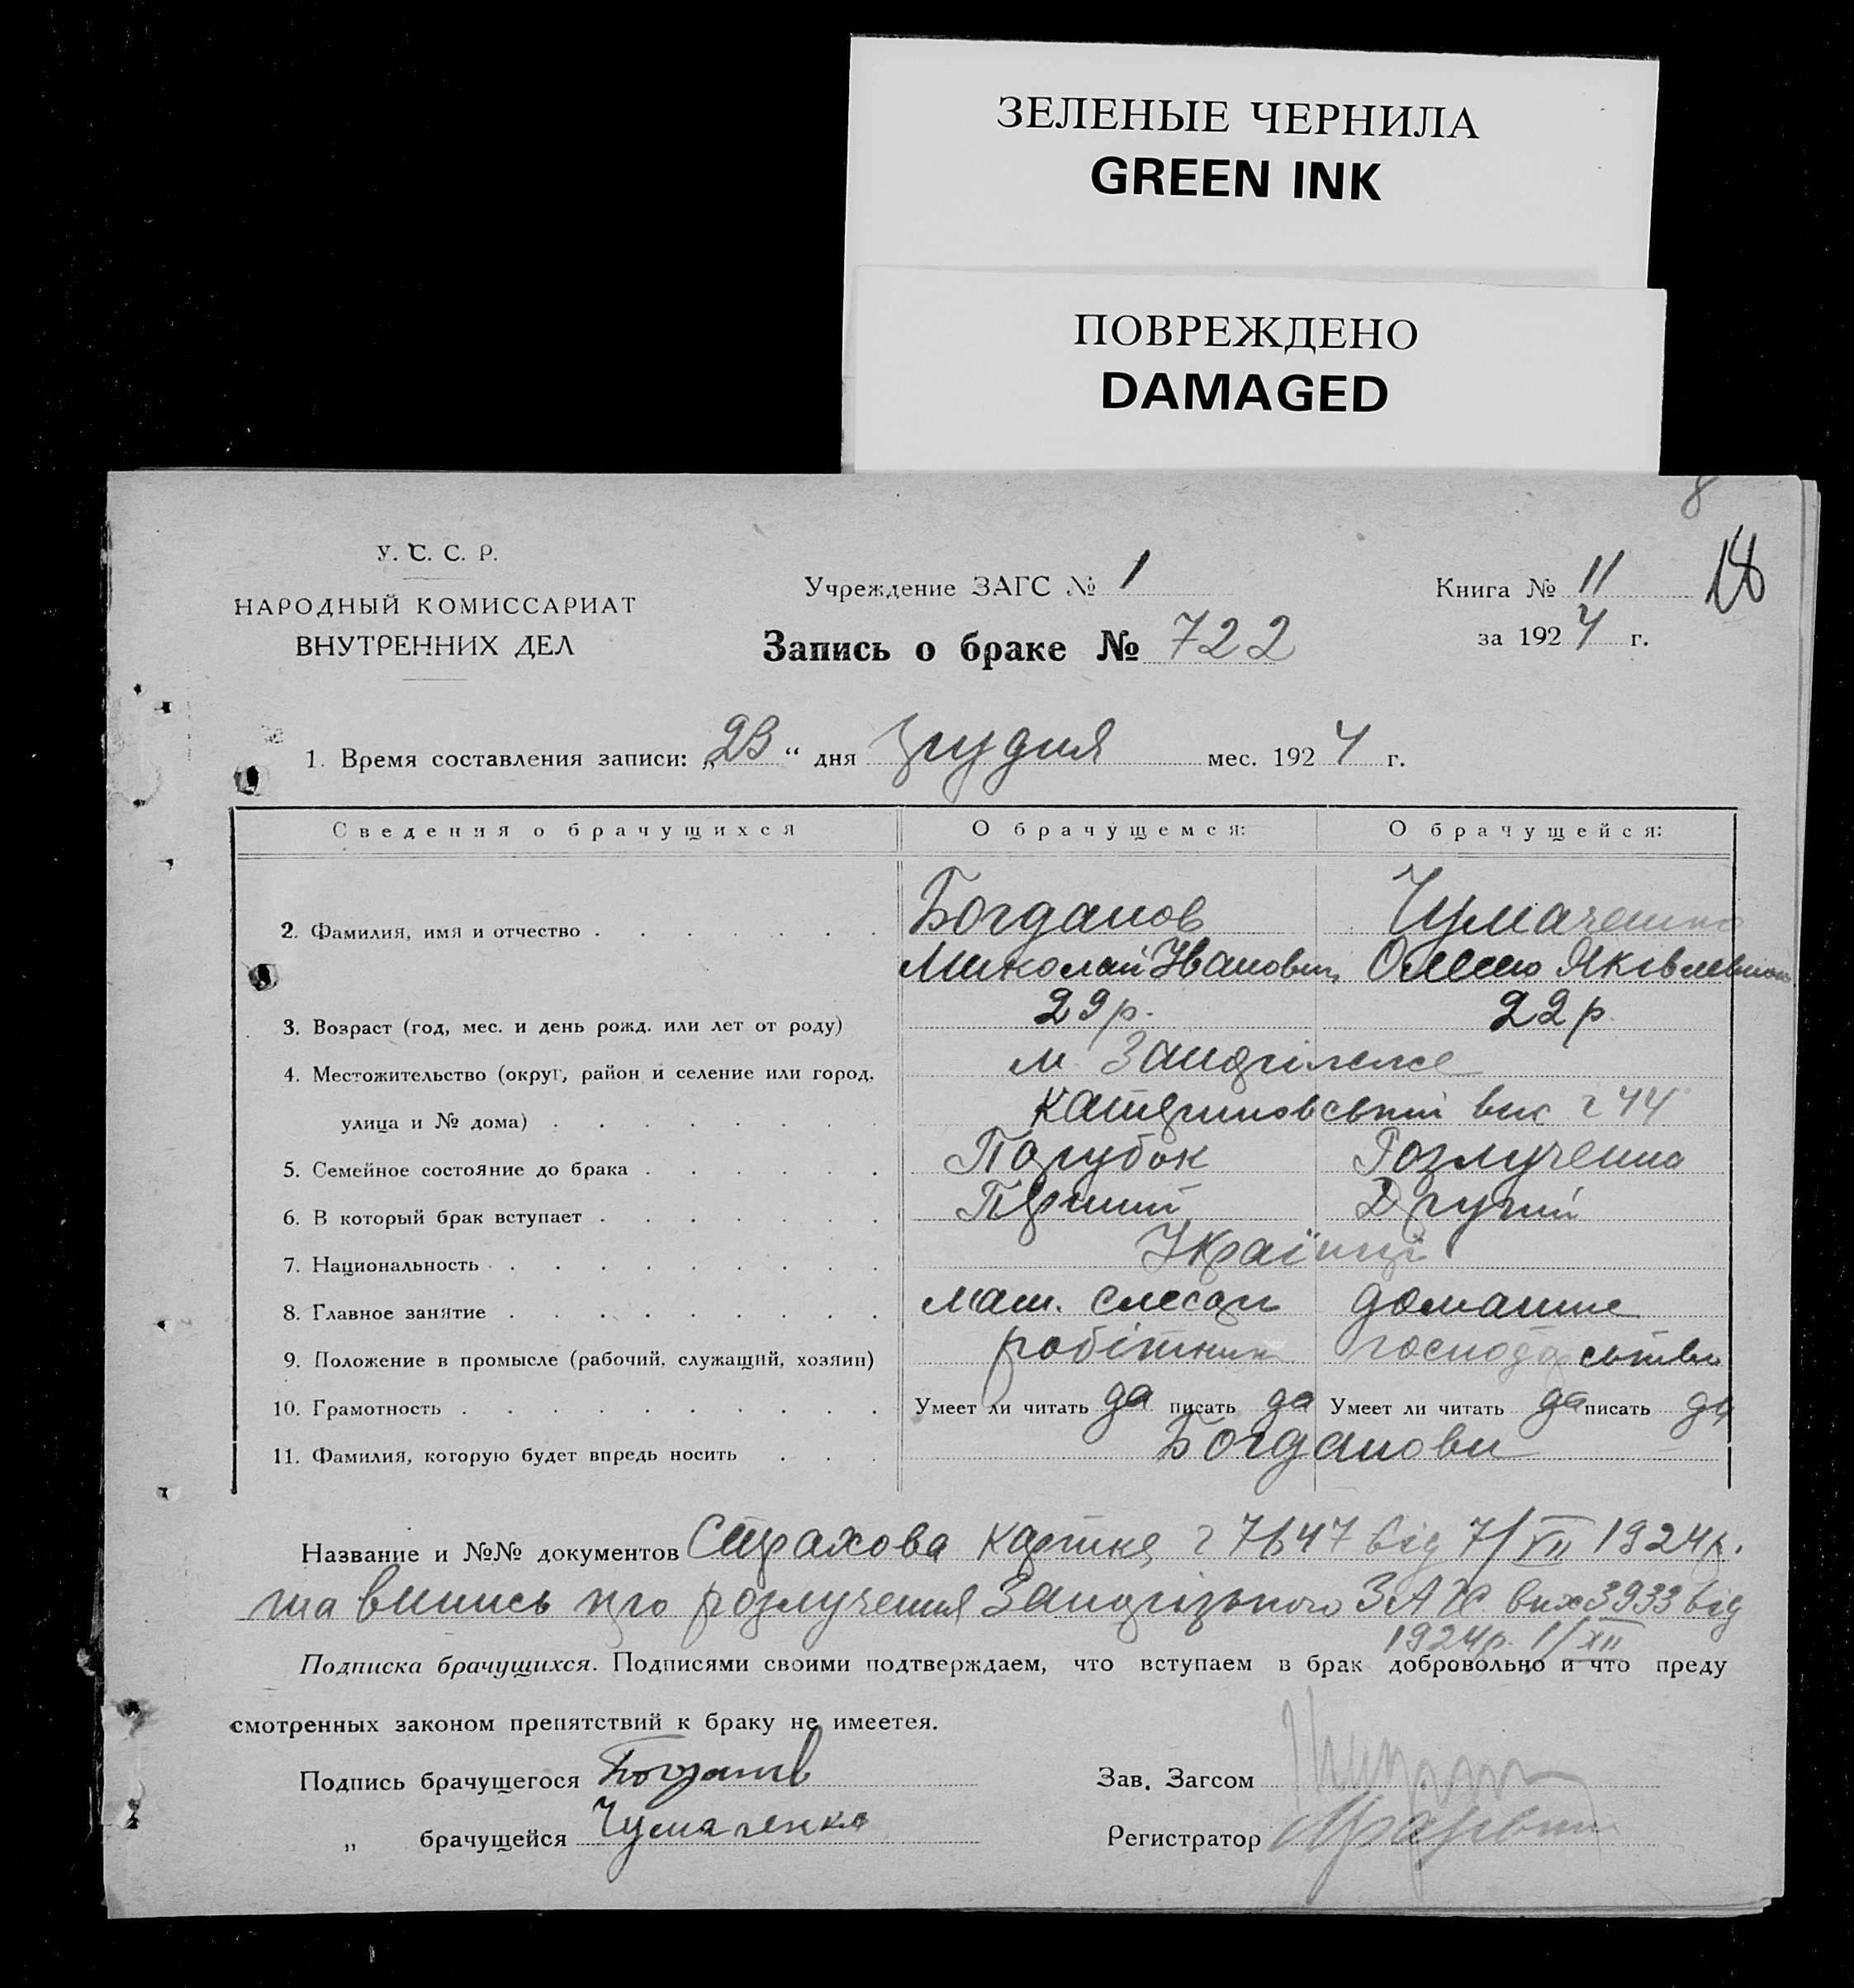 ЗЕЛЕНЫЕ ЧЕРНИЛА
GREEN INK
ПОВРЕЖДЕНО
DAMAGED
8
У. С. С. Р.
НАРОДНЫЙ КОМИССАРИАТ
ВНУТРЕННИХ ДЕЛ
Учреждение ЗАГС № 1
Запись о браке № 722
Книга № 11
за 1924 г.
1. Время составления записи: „23“ дня грудня мес. 1924 г.
Сведения о брачущихся О брачущемся: О брачущейся:
2. Фамилия, имя и отчество Богданов Чумаченко
Миколай Іванович Яківлевною
3. Возраст (год, мес. и день рожд. или лет от роду) 29 р. 22 р
4. Местожительство (округ, район и селение или город, м Запоріжже
улица и № дома) 44
5. Семейное состояние до брака Парубок Розлученна
6. В который брак вступает Перший Другий
7. Национальность Українці
8. Главное занятие маш. слесарь домашне
9. Положение в промысле (рабочий, служащий, хозяин) робітник господарсьтво
10. Грамотность Умеет ли читать да писать да Умеет ли читать да писать да
11. Фамилия, которую будет впредь носить Богданови
Название и №№ документов Страхова картка 7647 від 7/XII 1924 р.
та випись про розлучення Запорізького ЗАГС вих 3933 від
1924 р. 1/XII
Подписка брачущихся. Подписями своими подтверждаем, что вступаем в брак добровольно и что преду
смотренных законом препятствий к браку не имеетея.
Подпись брачущегося Богданов Зав. Загсом
„ брачущейся Чумаченко Регистратор